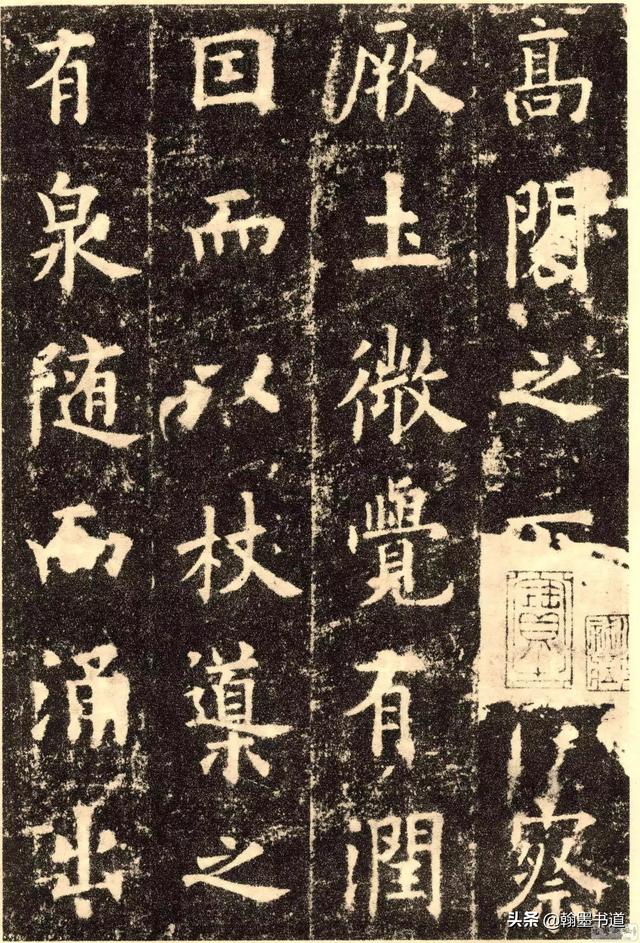 高閣之察
厥土微覺有潤
囙而以杖導之
有泉随而涌出
头条 @翰墨书道